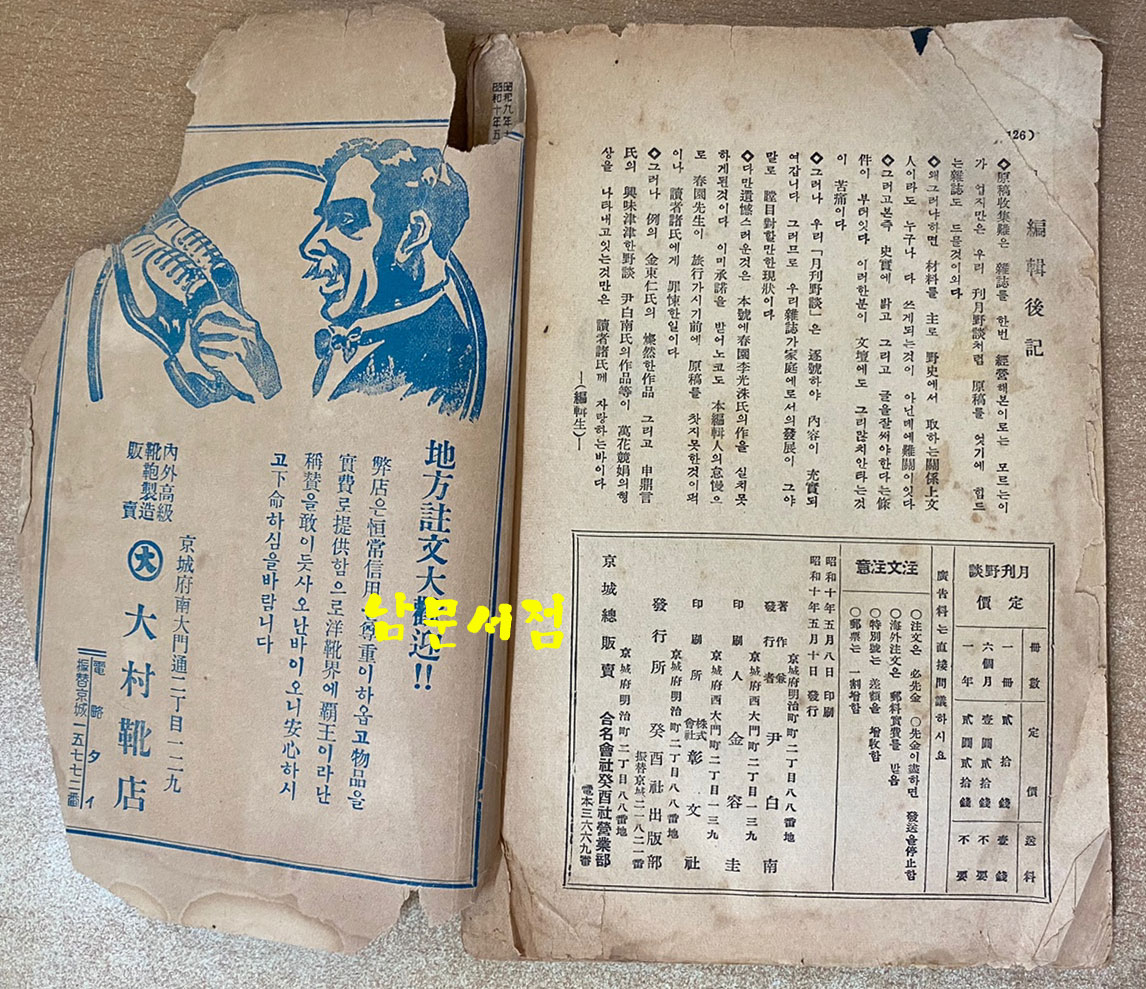 (126)
編輯後記
◇原稿收集難은 雜誌를 한번 經營해본이로는 모르는이
가 업지만은 우리 刊月野談처럼 原稿를 엇기에 힘드
는雜誌도 드물것이외다
◇왜그러냐하면 材料를 主로 野史에서 取하는關係上文
人이라도 누구나 다 쓰게되는것이 아닌데에難關이잇다
◇그러고본즉 史實에 밝고 그리고 글을잘써야한다는條
件이 부터잇다 이러한분이 文壇에도 그리많치안타는것
이 苦痛이다
◇그러나 우리「月刊野談」은 逐號하야 內容이 充實되
여갑니다 그러므로 우리雜誌가家庭에로서의發展이 그야
말로 瞠目對할만한現狀이다
◇다만遺憾스러운것은 本號에春園李光洙氏의作을 실치못
하게된것이다 이미承諾을 받어노코도 本編輯人의怠慢으
로 春園先生이 旅行가시기前에 原稿를 찻지못한것이머
이나 讀者諸氏에게 罪悚한일이다
◇그러나 例의 金東仁氏의 燦然한作品 그리고 申鼎言
氏의 興味津津한野談 尹白南氏의作品等이 萬花競娟의形
상을 나타내고잇는것만은 讀者諸氏께 자랑하는바이다
―(編輯生)―
月刊野談 定價
冊數 定價 送料
一冊 貳拾錢 壹錢
六個月 壹圓貳拾錢 不要
一年 貳圓貳拾錢 不要
廣告料는直接問議하시요
注文注意
○注文은 必先金 ○先金이盡하면 發送을停止함
○海外注文은 郵料實費를 받음
○特別號는 差額을 增收함
○郵票는 一割增함
昭和十年五月八日 印刷
昭和十年五月十日 發行
京城府明治町二丁目八八番地
著作兼發行者 尹白南
京城府西大門町二丁目一三九
印刷人 金容圭
京城府西大門町二丁目一三九
印刷所 株式會社 彰文社
京城府明治町二丁目八八番地
發行所 癸酉社出版部
振替京城二一八二一番
京城府明治町二丁目八八番地
京城總販賣 合名會社癸酉社營業部
電本三六六九番
昭和九年十
昭和十年五
地方註文大歡迎!!
弊店은恒常信用 尊重이하옵고物品을
實費로提供함으로洋靴界에覇王이라난
稱賛을敢이듯사오난바이오니安心하시
고下命하심을바람니다
內外高級
靴鞄製造
販賣
京城府南大門通二丁目一二九
大 大村靴店
電略タイ
振替京城一五七七二番
남문서점